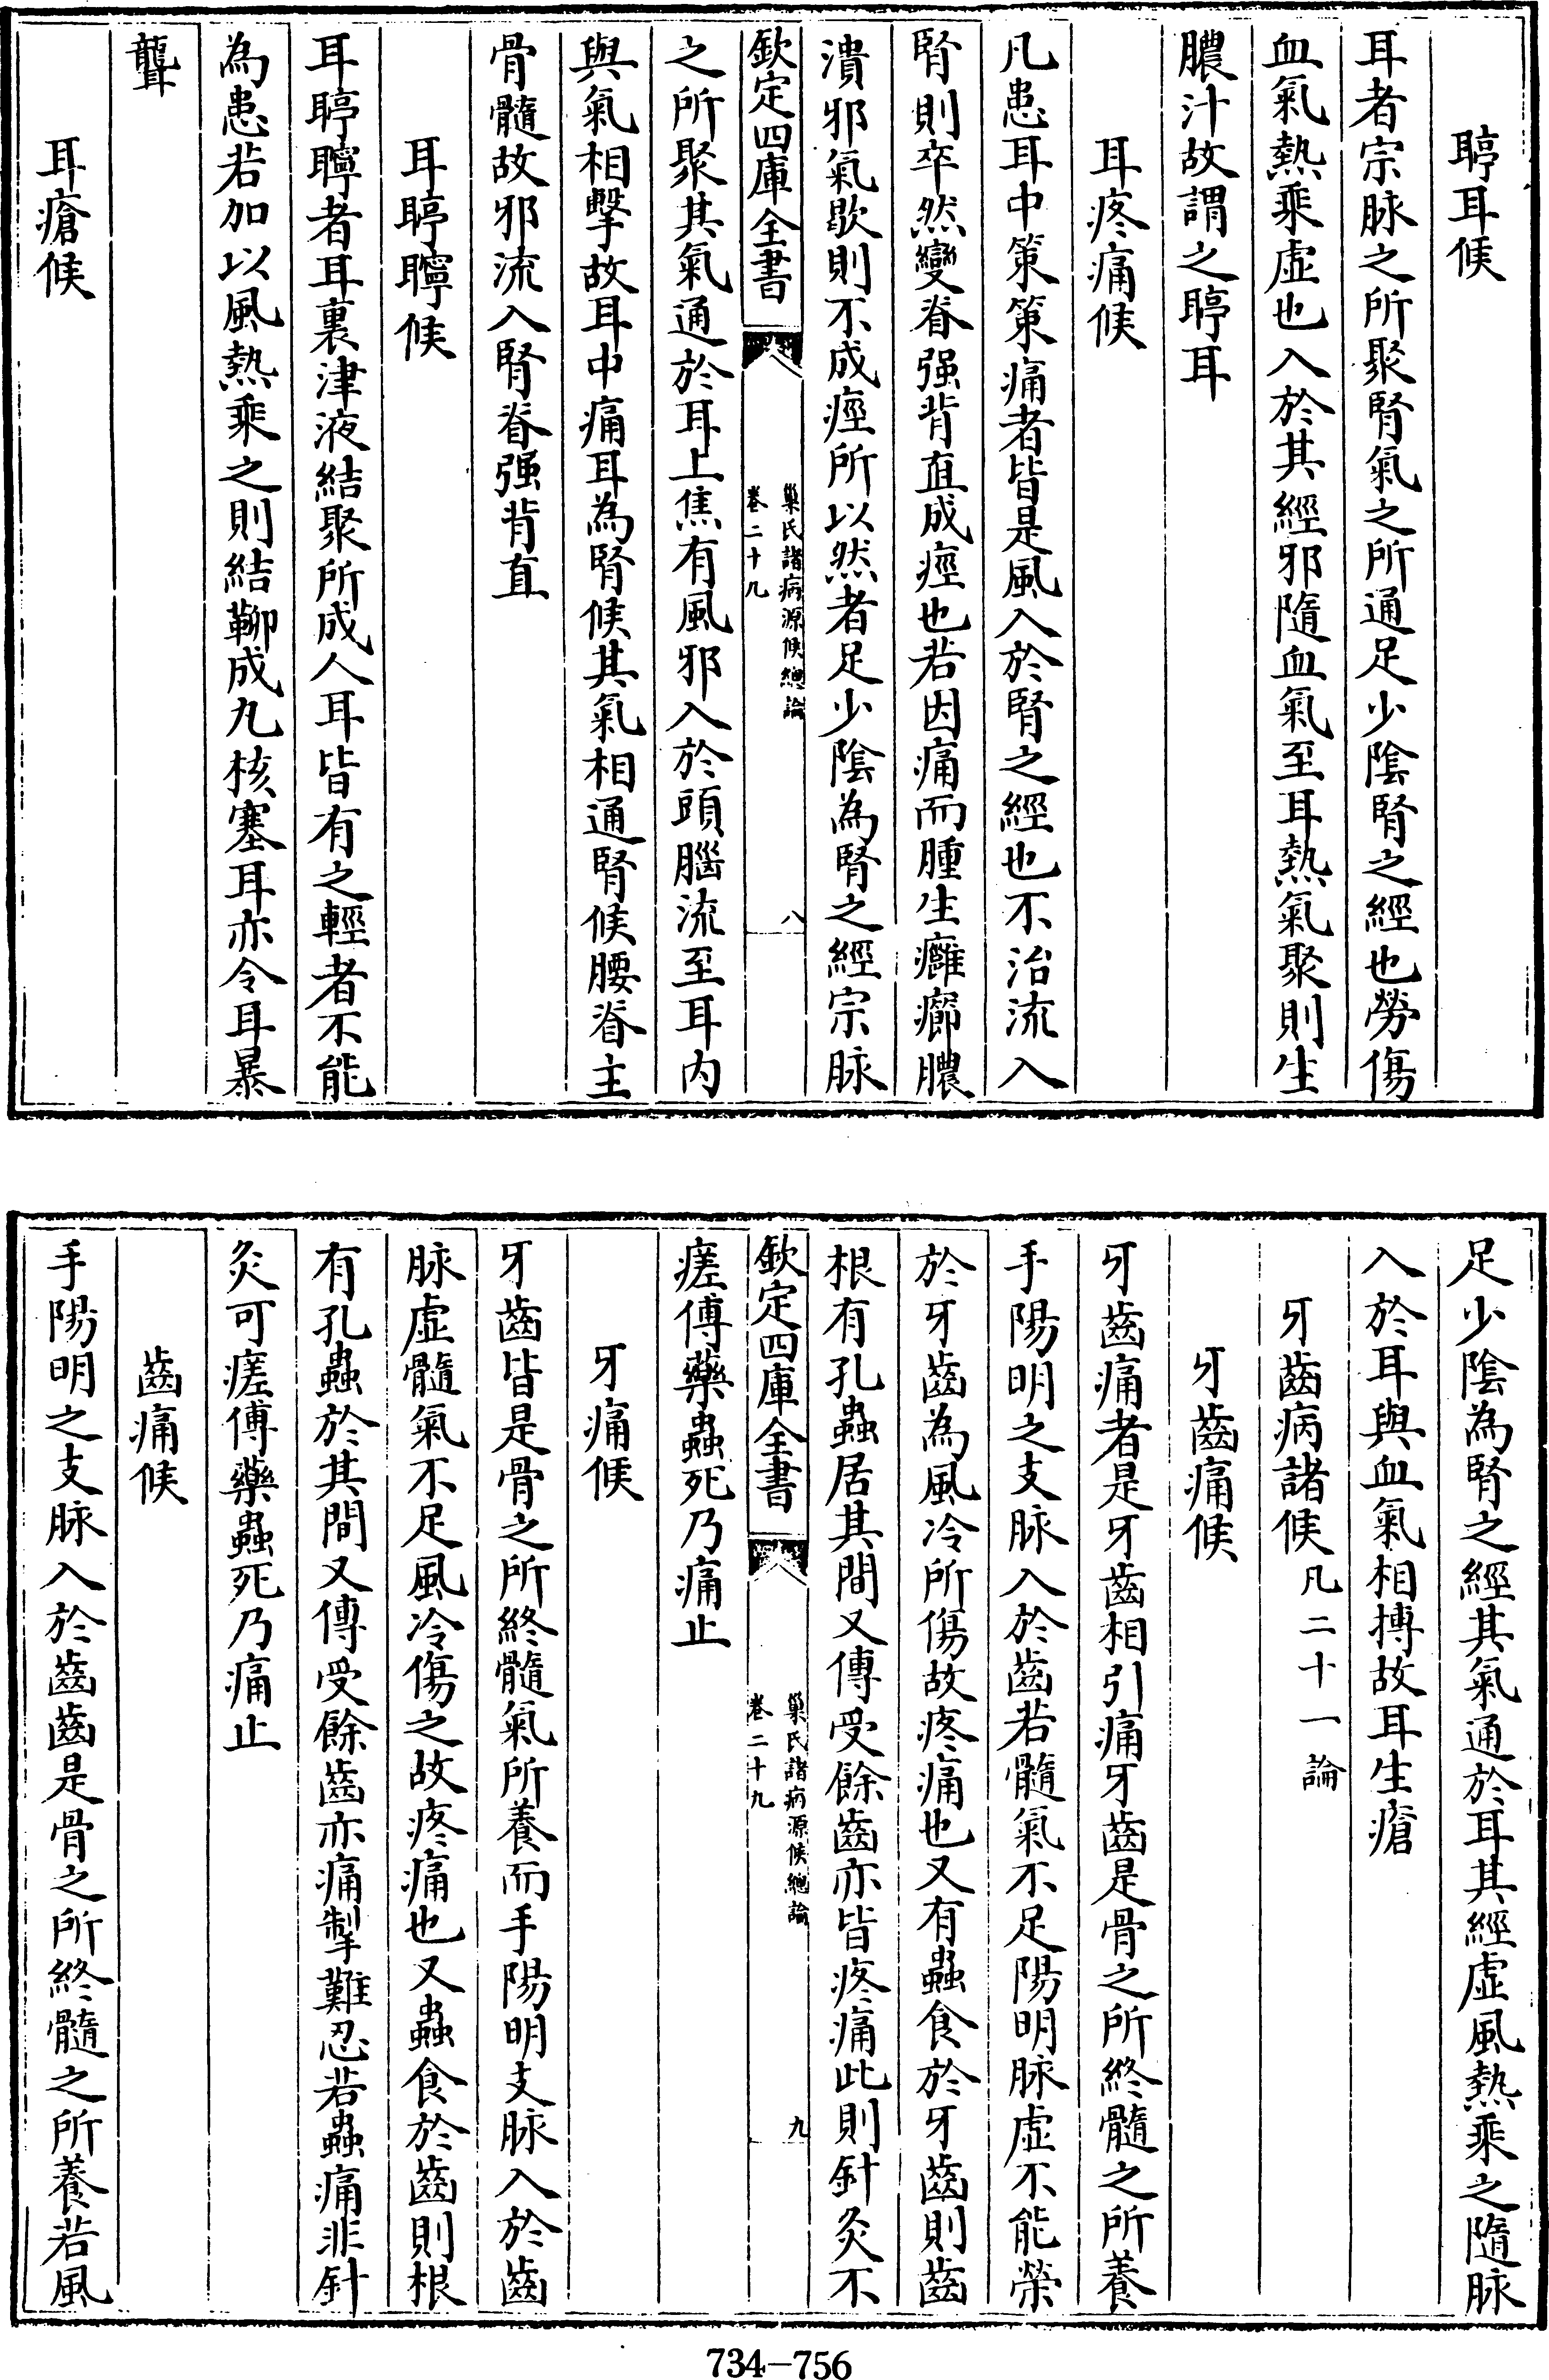 聤耳候
耳者宗脉之所聚腎氣之所通足少陰腎之經也勞傷
血氣熱乘虛也入於其經邪隨血氣至耳熱氣聚則生
膿汁故謂之聤耳
耳疼痛候
凡患耳中策策痛者皆是風入於腎之經也不治流入
腎則卒然變脊强背直成痙也若因痛而腫生癰癤膿
潰邪氣歇則不成痙所以然者足少陰為腎之經宗脉
欽定四庫全書
巢氏諸病源候總論
卷二十九
八
之所聚其氣通於耳上焦有風邪入於頭腦流至耳内
與氣相擊故耳中痛耳為腎候其氣相通腎候腰脊主
骨髓故邪流入腎脊强背直
耳聤聹候
耳聤聹者耳裏津液結聚所成人耳皆有之輕者不能
為患若加以風熱乘之則結䩬成丸核塞耳亦令耳暴
聾
耳瘡候
足少陰為腎之經其氣通於耳其經虛風熱乘之隨脉
入於耳與血氣相摶故耳生瘡
牙齒病諸候凡二十一論
牙齒痛候
牙齒痛者是牙齒相引痛牙齒是骨之所終髓之所養
手陽明之支脉入於齒若髓氣不足陽明脉虛不能榮
於牙齒為風冷所傷故疼痛也又有蟲食於牙齒則齒
根有孔蟲居其間又傳受餘齒亦皆疼痛此則針灸不
欽定四庫全書
巢氏諸病源候總論
卷二十九
九
瘥傅藥蟲死乃痛止
牙痛候
牙齒皆是骨之所終髓氣所養而手陽明支脉入於齒
脉虛髓氣不足風冷傷之故疼痛也又蟲食於齒則根
有孔蟲於其間又傳受餘齒亦痛掣難忍若蟲痛非針
灸可瘥傅藥蟲死乃痛止
齒痛候
手陽明之支脉入於齒齒是骨之所終髓之所養若風
734-756